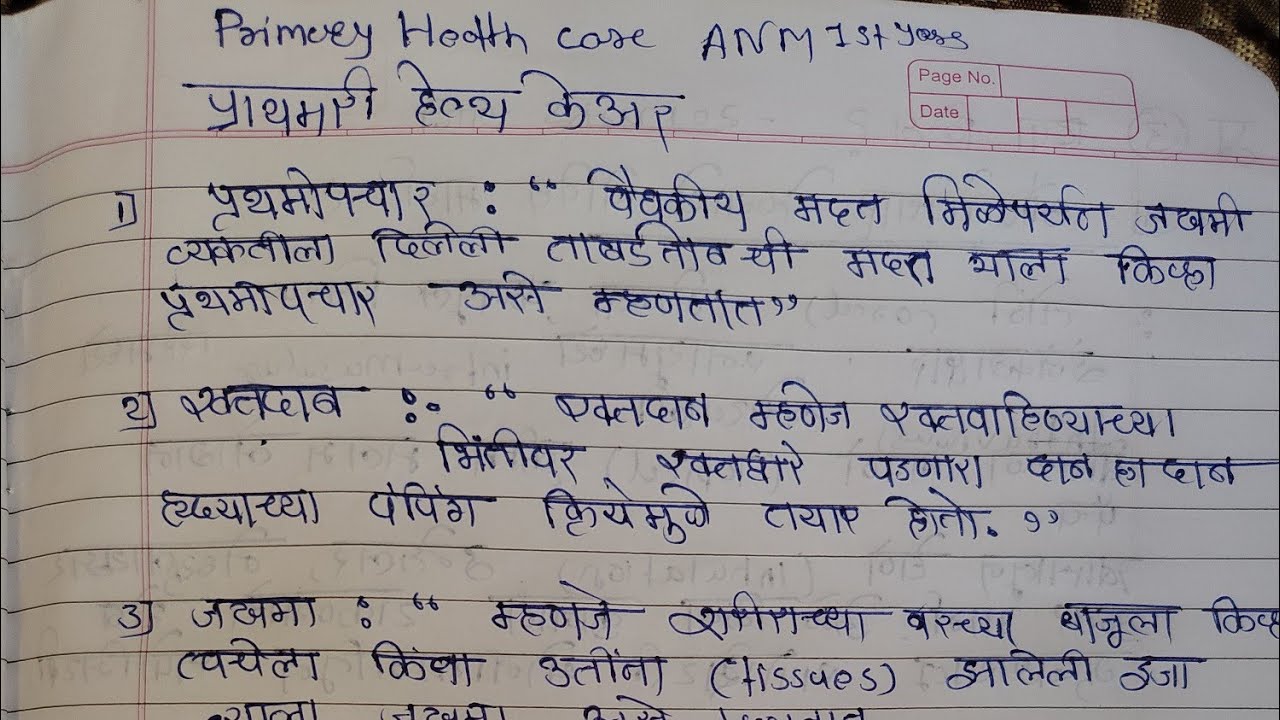 Primary Health care ANM 1st year
Page No.
प्राथमरी हेल्थ केअर
Date
1) प्रथमोपचार : “ वैधकीय मदत मिळेपर्यंत जखमी
व्यक्तीला दिलेली ताबडतोब ची मदत याला किंव्हा
प्रथमोपचार असे म्हणतात”
२) रक्तदाब : “ रक्तदाब म्हणेज रक्तवाहिन्याच्या
भिंतीवर रक्ताद्वारे पडणारा दाब हा दाब
हृदयाच्या पंपिंग क्रियेमुळे तयार होतो. ”
३) जखमा : “ म्हणजे शरीराच्या वरच्या बाजूला
त्वचेला किंवा उतींना (tissues) झालेली इजा